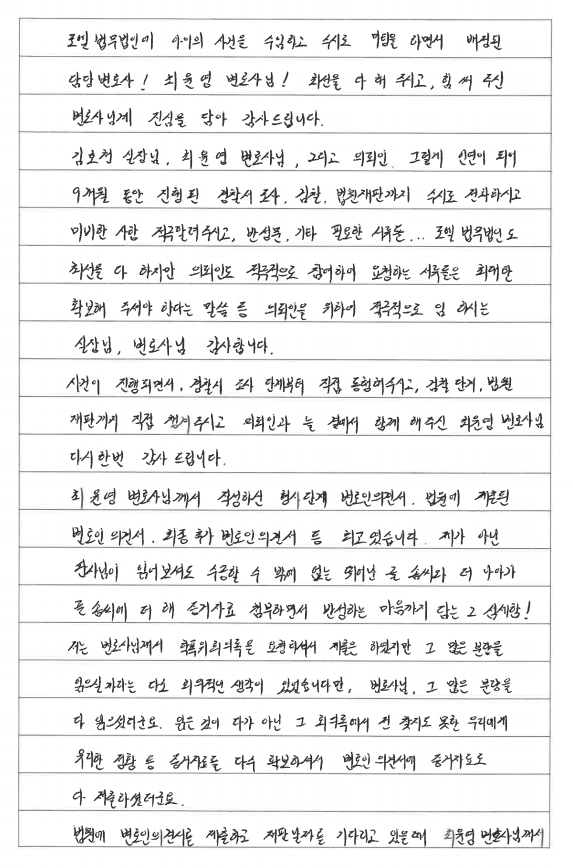 로엘 법무법인에 아이의 사건을 수임하고 수시로 미팅을 하면서 배정된
담당변호사! 최윤영 변호사님! 최선을 다 해 주시고, 힘 써 주신
변호사님께 진심을 담아 감사드립니다.
김호천 실장님, 최윤영 변호사님, 그리고 의뢰인 그렇게 인연이 되어
9개월 동안 진행된 경찰서 조사, 검찰, 법원재판까지 수시로 전화하시고
미비한 사항 적극알려주시고, 반성문, 기타 필요한 서류들... 로엘 법무법인도
최선을 다 하지만 의뢰인도 적극적으로 참여하여 요청하는 서류들은 최대한
확보해 주셔야 한다는 말씀 등 의뢰인을 위하여 적극적으로 임 하시는
실장님, 변호사님 감사합니다.
사건이 진행되면서, 경찰서 조사 단계부터 직접 동행해주시고, 검찰 단계, 법원
재판까지 직접 챙겨주시고 의뢰인과 늘 곁에서 함께 해 주신 최윤영 변호사님
다시한번 감사 드립니다.
최윤영 변호사님께서 작성하신 형사단계 변호인의견서, 법원에 제출된
변호인 의견서, 최종 추가 변호인의견서 등 최고였습니다. 제가 아닌
판사님이 읽어보셔도 수긍할 수 밖에 없는 뛰어난 글 솜씨와 더 나아가
글 솜씨에 더 해 증거자료 첨부하면서 반성하는 마음까지 담는 그 섬세함!
저는 변호사님께서 학폭위회의록을 요청하셔서 제출은 하였지만 그 많은 분량을
읽으실까라는 다소 회의적인 생각이 있었습니다만, 변호사님, 그 많은 분량을
다 읽으셨더군요. 읽은 것이 다가 아닌 그 회의록에서 전 찾지도 못한 우리에게
유리한 정황 등 증거자료들 다수 확보하셔서 변호인 의견서에 증거자료로
다 제출하셨더군요.
법원에 변호인의견서를 제출하고 재판날짜를 기다리고 있을때 최윤영 변호사님께서